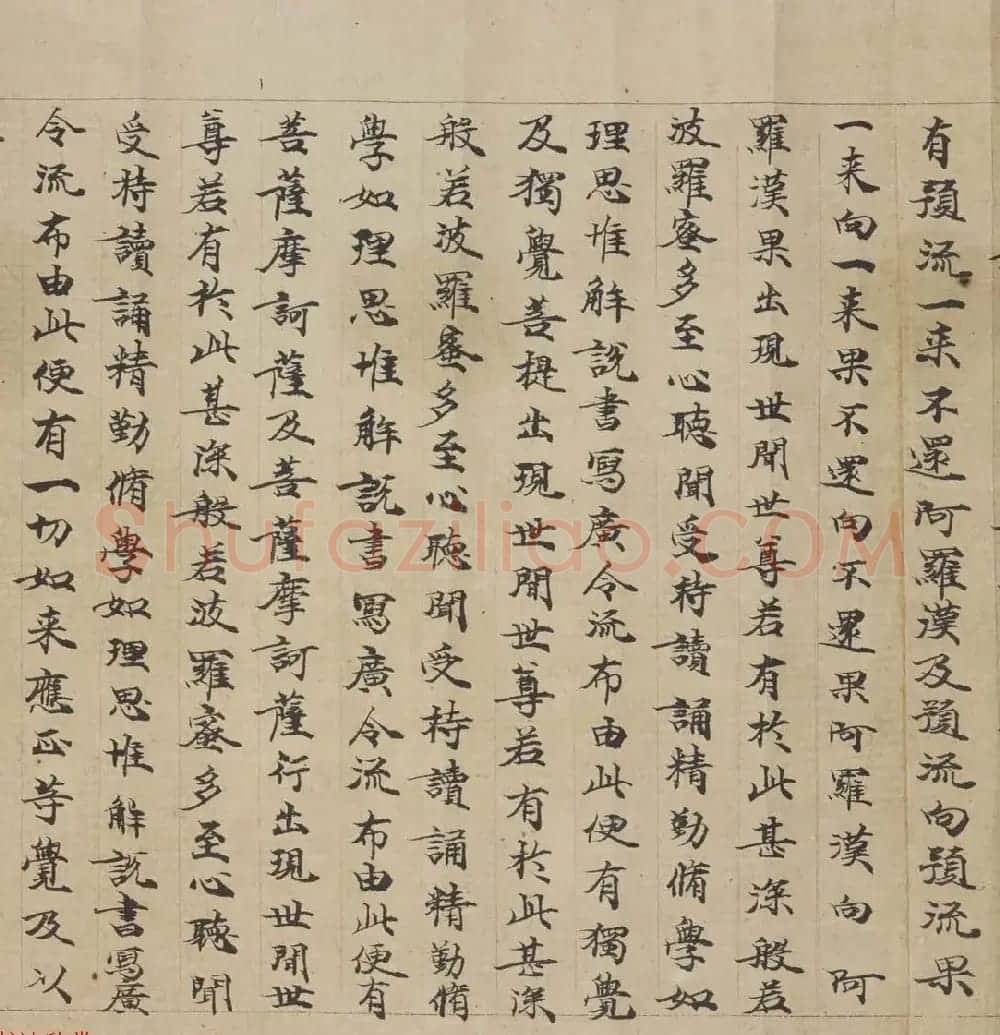 有預流一来不還阿羅漢及預流向預流果
一来向一来果不還向不還果阿羅漢向阿
羅漢果出現世間世尊若有於此甚深般若
波羅蜜多至心聴聞受持讀誦精勤脩學如
理思惟解說書寫廣令流布由此便有獨覺
及獨覺菩提出現世間世尊若有於此甚深
般若波羅蜜多至心聴聞受持讀誦精勤脩
學如理思惟解説書寫廣令流布由此便有
菩薩摩訶薩及菩薩摩訶薩行出現世間世
尊若有於此甚深般若波羅蜜多至心聴聞
受持讀誦精勤脩學如理思惟解説書寫廣
令流布由此便有一切如来應正等覺及以
Shufaziliao.COM